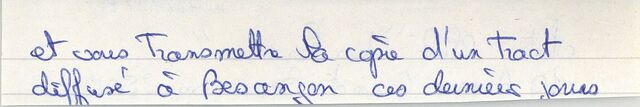 et vous Transmettre la copie d'un Tract
diffusé à Besançon ces derniers jours